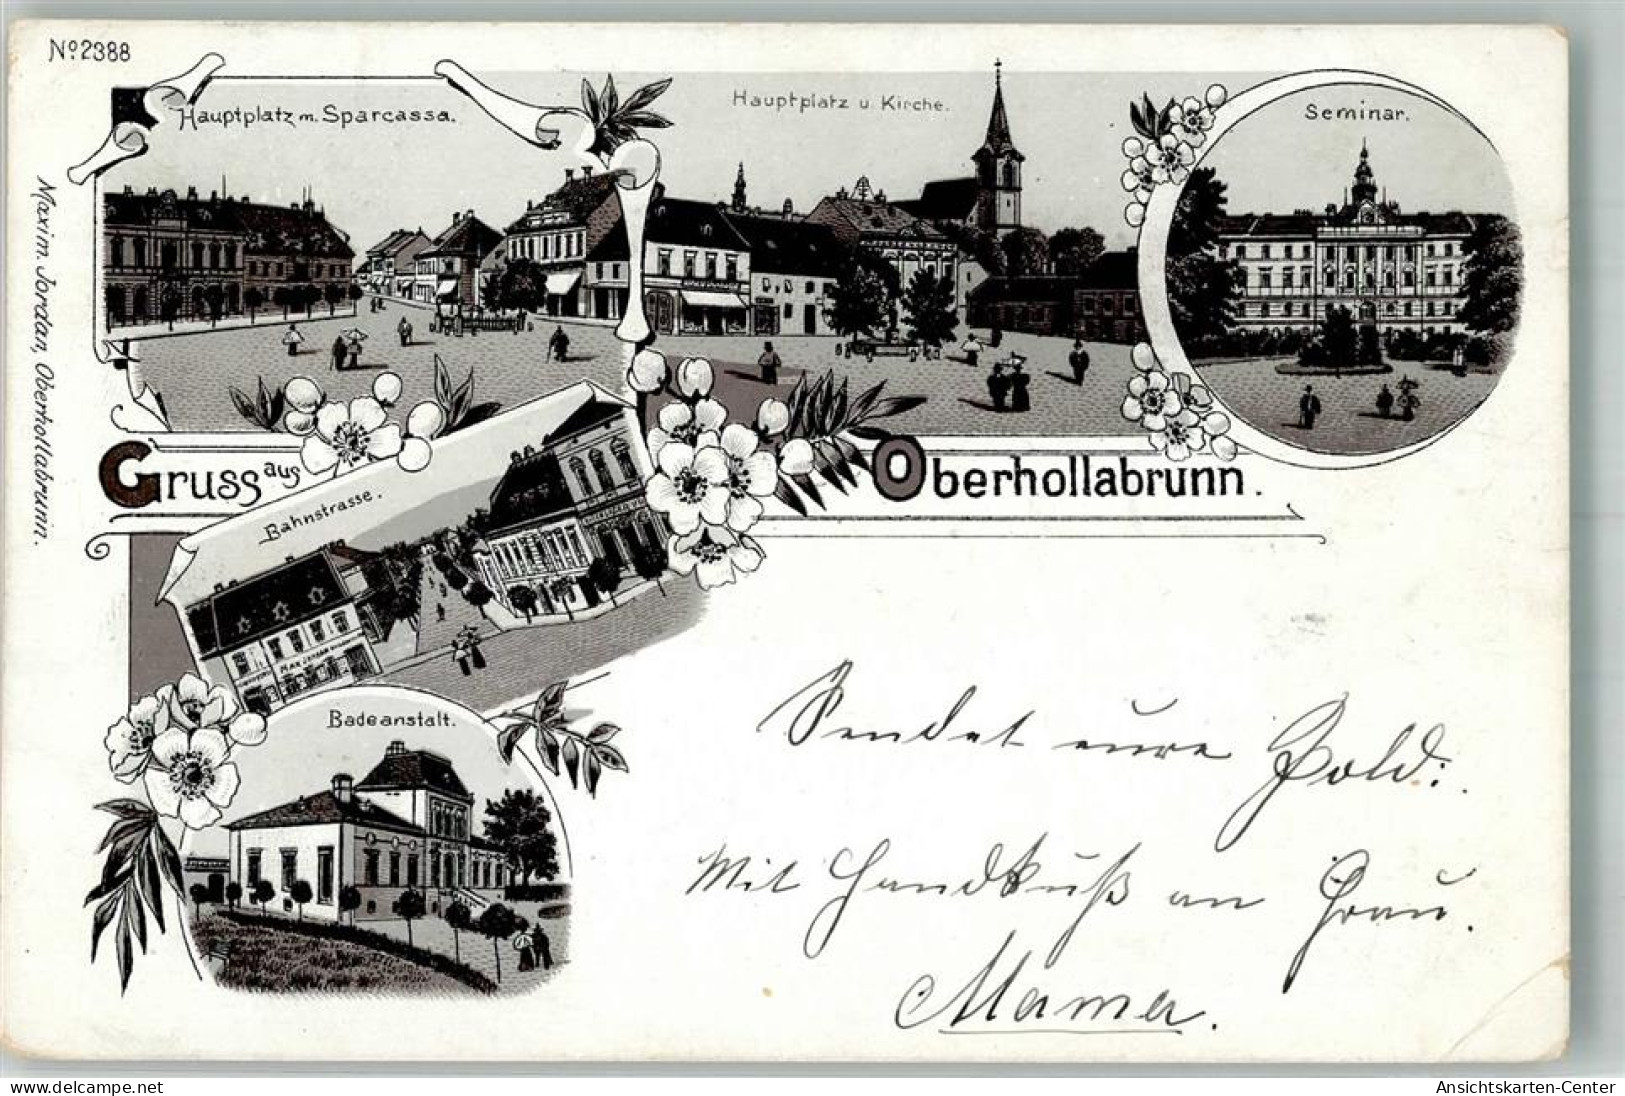 Nº 2388
Hauptplatz m. Sparcassa.
Hauptplatz u. Kirche.
Seminar.
Maxim. Jordan, Oberhollabrunn.
Gruss aus Oberhollabrunn.
Bahnstrasse.
MAX JORDAN
Badeanstalt.
Sendet eure Pold:.
Mit Handkuß an Frau.
Mama.
www.oldthing.de
Ansichtskarten-Center